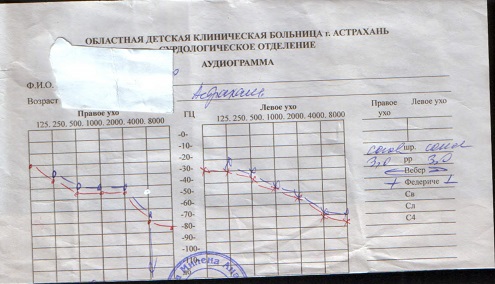 ОБЛАСТНАЯ ДЕТСКАЯ КЛИНИЧЕСКАЯ БОЛЬНИЦА г. АСТРАХАНЬ
СУРДОЛОГИЧЕСКОЕ ОТДЕЛЕНИЕ
АУДИОГРАММА
Ф.И.О.
Возраст
Астрахань
Правое ухо ГЦ Левое ухо
125. 250. 500. 1000. 2000. 4000. 8000
125. 250. 500. 1000. 2000. 4000. 8000
-0-
-10-
-20-
-30-
-40-
-50-
-60-
-70-
-80-
-90-
-100-
-110-
Правое ухо Левое ухо
шр.
3,0 рр 3,0
Вебер
Федериче
Св
Сл
С4